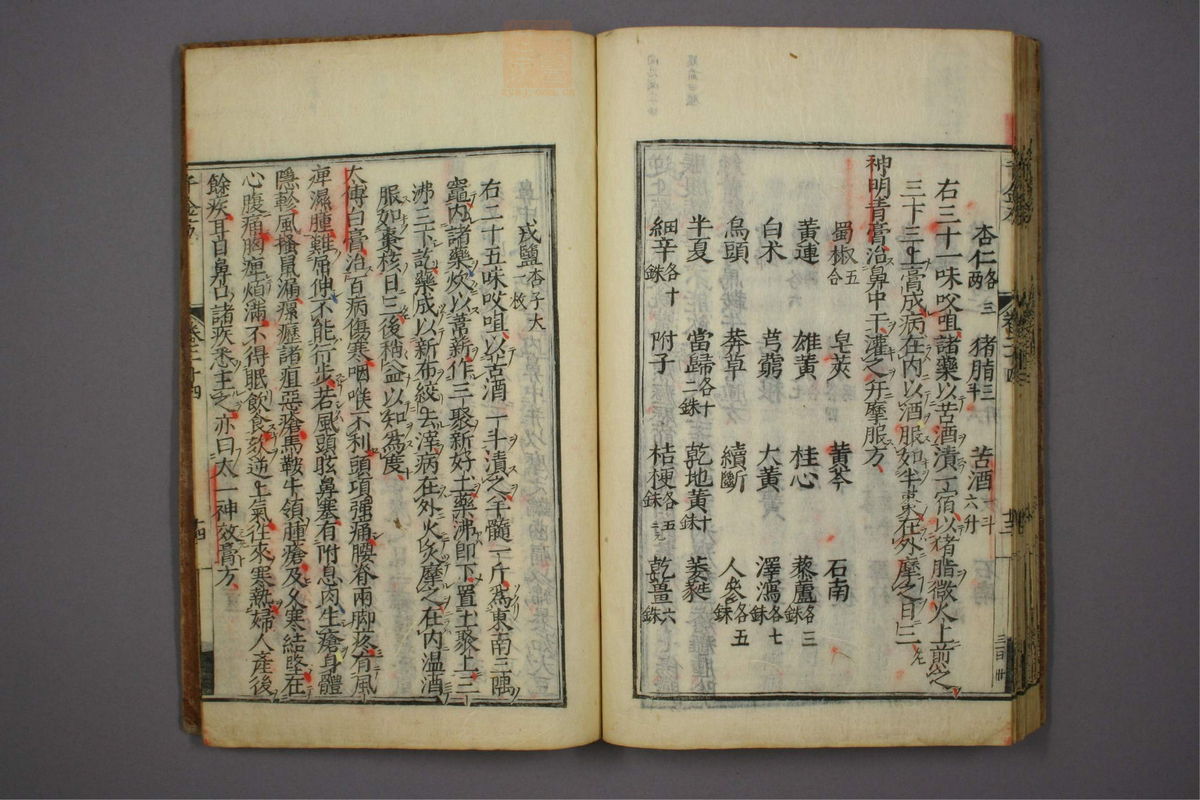 杏仁各三兩 猪脂三斗 苦酒一斗六升
右三十一味㕮咀諸藥以苦酒漬一宿以猪脂微火上煎之
三下三上膏成病在内以酒服如半棗在外摩之日三
神明青膏治鼻中干灌之并摩服方
蜀椒五合 皂莢 黄芩 石南
黄連 雄黄 桂心 藜蘆各三銖
白术 芎藭 大黄 澤瀉各七銖
烏頭 莽草 續斷 人參各五銖
半夏 當歸各十二銖 乾地黄十銖 葵蕤
細辛各十銖 附子 桔梗各五銖 乾薑六銖
戎鹽杏子大一枚
右二十五味㕮咀以苦酒一斗漬之羊髓一斤爲東南三隅
竈内諸藥炊以葦薪作三聚新好土藥沸即下置土聚上三
沸三下訖藥成以新布絞去滓病在外火炙摩之在内温酒
服如棗核日三後稍益以知爲度
太傅白膏治百病傷寒咽喉不利頭項強痛腰脊兩脚疼有風
痺濕腫難屈伸不能行步若風頭眩鼻塞有附息肉生瘡身體
隱軫風搔鼠漏瘰癧諸疽惡瘡馬鞍牛領腫瘡及久寒結堅在
心腹痛胸痺煩滿不得眠飲食欬逆上氣往來寒熱婦人産後
餘疾耳目鼻口諸疾悉主之亦曰太一神效膏方
卷二十四